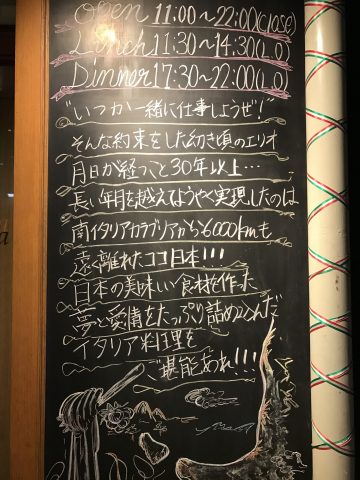 Open 11:00~22:00(close)
Lunch 11:30~14:30(L.O)
Dinner 17:30~22:00(L.O)
"いつか一緒に仕事しようぜ!"
そんな約束をした幼き頃のエリオ
月日が経つこと30年以上…
長い年月を越えてようやく実現したのは
南イタリアカラブリアから6000kmも
遠く離れたココ日本!!!
日本の美味しい食材を使った
夢と愛情をたっぷり詰め込んだ
イタリア料理を
ご堪能あれ!!!